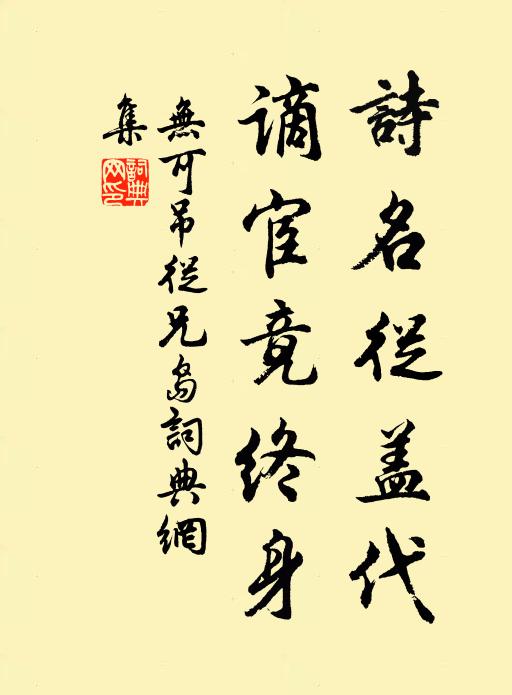 詩名從盖代
謫宦竟終身
無可吊從兄島詞典網
集
詞典網印